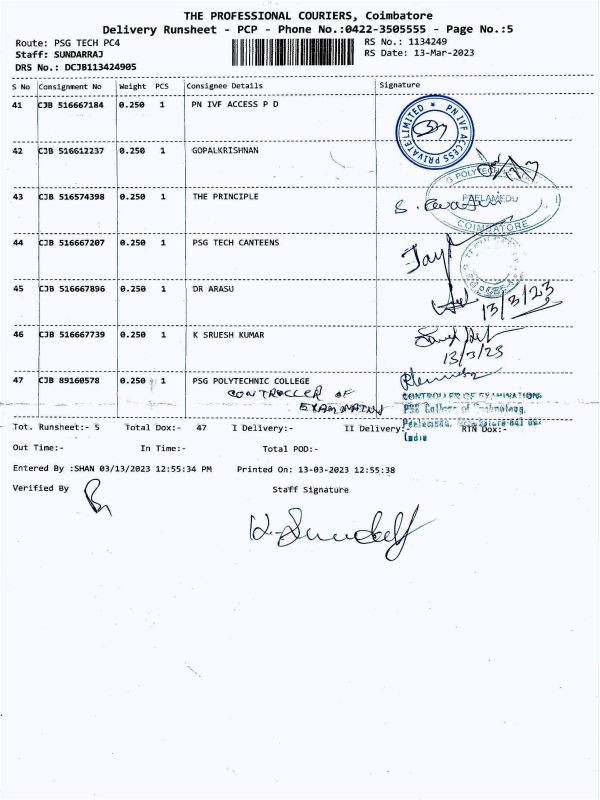 THE PROFESSIONAL COURIERS, Coimbatore
Delivery Runsheet - PCP - Phone No.:0422-3505555 - Page No.:5
Route: PSG TECH PC4
RS No.: 1134249
Staff: SUNDARRAJ
RS Date: 13-Mar-2023
DRS No.: DCJB113424905
S No Consignment No Weight PCS Consignee Details Signature
41 CJB 516667184 0.250 1 PN IVF ACCESS P D
PN IVF ACCESS PRIVATE LIMITED
42 CJB 516612237 0.250 1 GOPALKRISHNAN
43 CJB 516574398 0.250 1 THE PRINCIPLE
PEELAMEDU
COIMBATORE
44 CJB 516667207 0.250 1 PSG TECH CANTEENS
45 CJB 516667896 0.250 1 DR ARASU
13/3/23
46 CJB 516667739 0.250 1 K SRUESH KUMAR
13/3/23
47 CJB 89160578 0.250 1 PSG POLYTECHNIC COLLEGE
CONTROLLER OF
EXAMINATION
CONTROLLER OF EXAMINATION
PSG College of Technology,
India
Tot. Runsheet:- 5 Total Dox:- 47 I Delivery:- II Delivery:- RTN Dox:-
Out Time:- In Time:- Total POD:-
Entered By :SHAN 03/13/2023 12:55:34 PM Printed On: 13-03-2023 12:55:38
Verified By Staff Signature